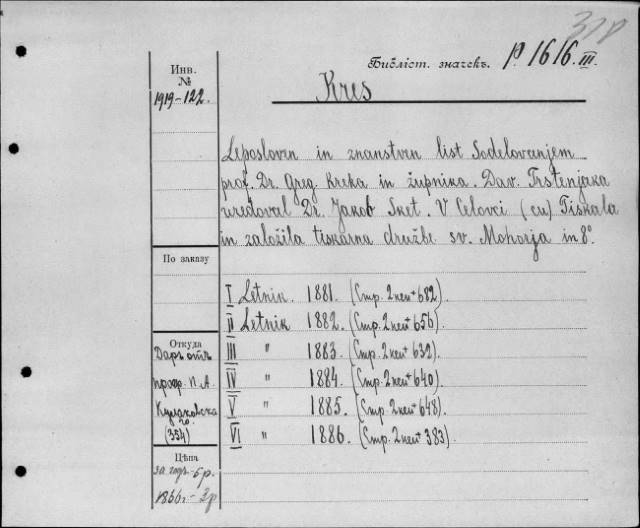 37р
Библіот. значекъ. P. 1616. III.
Инв. №
1919-122.
Kres
Leposloven in znanstven list Sodelovanjem
prof. Dr. Greg Kreka in župnika. Dav. Trstenjaka
uredoval Dr. Jakob Sket. V Celovci (cu) Tiskala
in založila tiskarna družbe sv. Mohorja in 8°
По заказу
I Letnik. 1881. (Стр. 2нен+682).
II Letnik 1882. (Стр. 2нен+656).
III " 1883. (Стр. 2нен+632).
IV " 1884. (Стр. 2нен+640).
V " 1885. (Стр. 2нен+648).
VI " 1886. (Стр. 2нен+383).
Откуда
Даръ отъ
проф. П. А.
Кулаковска
го.
(354)
Цѣна
за годъ-5р.
1886г-3р